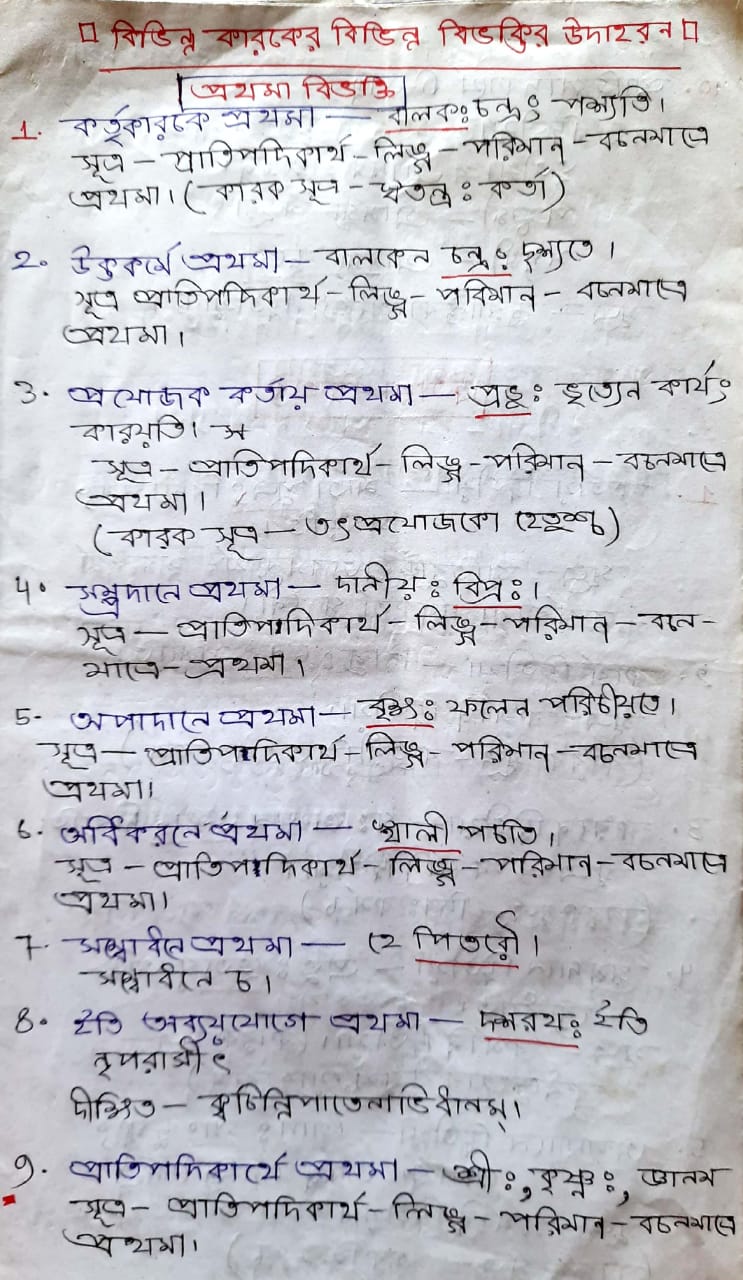 ▯ বিভিন্ন কারকের বিভিন্ন বিভক্তির উদাহরন ▯
প্রথমা বিভক্তি
1. কর্তৃকারকে প্রথমা — বালকঃ চন্দ্রং পশ্যতি।
সূত্র – প্রাতিপদিকার্থ – লিঙ্গ – পরিমান – বচনমাত্রে
প্রথমা। (কারক সূত্র – স্বতন্ত্রঃ কর্তা)
2. উক্তকর্মে প্রথমা – বালকেন চন্দ্রঃ দৃশ্যতে।
সূত্র প্রাতিপদিকার্থ – লিঙ্গ – পরিমান – বচনমাত্রে
প্রথমা।
3. প্রযোজক কর্তায় প্রথমা — প্রভুঃ ভৃত্যেন কার্যং
কারয়তি। স
সূত্র – প্রাতিপদিকার্থ – লিঙ্গ – পরিমান – বচনমাত্রে
প্রথমা।
(কারক সূত্র – তৎপ্রযোজকো হেতুশ্চ)
4. সম্প্রদানে প্রথমা — দানীয়ঃ বিপ্রঃ।
সূত্র — প্রাতিপাদিকার্থ – লিঙ্গ – পরিমান – বচন –
মাত্রে – প্রথমা।
5. অপাদানে প্রথমা — বৃক্ষঃ ফলেন পরিচীয়তে।
সূত্র — প্রাতিপাদিকার্থ – লিঙ্গ – পরিমান – বচনমাত্রে
প্রথমা।
6. অধিকরনে প্রথমা — স্থালী পচতি।
সূত্র – প্রাতিপাদিকার্থ – লিঙ্গ – পরিমান – বচনমাত্রে
প্রথমা।
7. সম্বোধনে প্রথমা — হে পিতরৌ।
সম্বোধনে চ।
8. ইতি অব্যয়যোগে প্রথমা — দশরথঃ ইতি
নৃপরাসীৎ
দীক্ষিত – ক্বচিন্নিপাতেনাভিধানম্।
9. প্রাতিপদিকার্থে প্রথমা – শ্রীঃ, কৃষ্ণঃ, জ্ঞানম
সূত্র – প্রাতিপদিকার্থ – লিঙ্গ – পরিমান – বচনমাত্রে
প্রথমা।